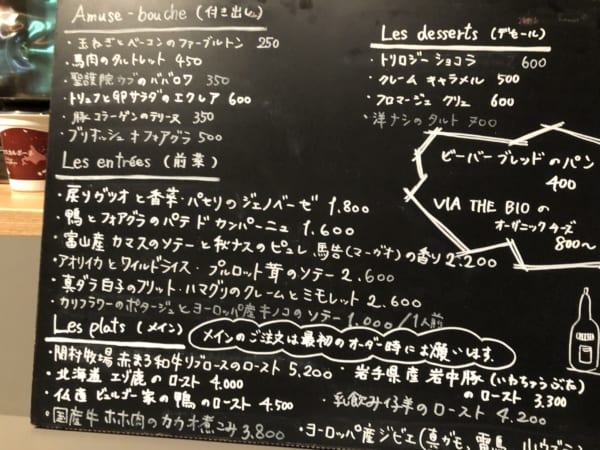 Amuse-bouche (付き出し)
・玉ねぎとベーコンのファーブルトン 250
・馬肉のタルトレット 450
・聖護院カブのババロワ 350
・トリュフとGPサラダのエクレア 600
・豚コラーゲンのテリーヌ 350
・ブリオッシュ オ フォアグラ 500
Les entrées (前菜)
・戻りガツオと香草・パセリのジェノベーゼ 1.800
・鴨とフォアグラのパテ ド カンパーニュ 1.600
・富山産 カマスのソテーと秋ナスのピュレ 馬告(マーガオ)の香り 2.200
・アオリイカとワイルドライス・プルロット茸のソテー 2.600
・真ダラ白子のフリット・ハマグリのクレームとミモレット 2.600
・カリフラワーのポタージュとヨーロッパ産キノコのソテー 1.000/1人前
Les plats (メイン)
メインのご注文は最初のオーダー時にお願いします。
・関村牧場 赤まる和牛リブロースのロースト 5,200
・北海道 エゾ鹿のロースト 4.000
・仏産 ビュルゴー家の鴨のロースト 4.500
・国産牛ホホ肉のカカオ煮こみ 3.800
・岩手県産 岩中豚(いわちゅうぶた)
のロースト 3.300
・乳飲み仔羊のロースト 4.200
・ヨーロッパ産ジビエ(真ガモ、雷鳥、山ウズラ
Les desserts (デセール)
・トリロジー ショコラ 600
・クレーム キャラメル 500
・フロマージュ クリュ 600
・洋ナシのタルト 700
ビーバーブレッドのパン
400
VIA THE BIOの
オーガニックチーズ
800〜